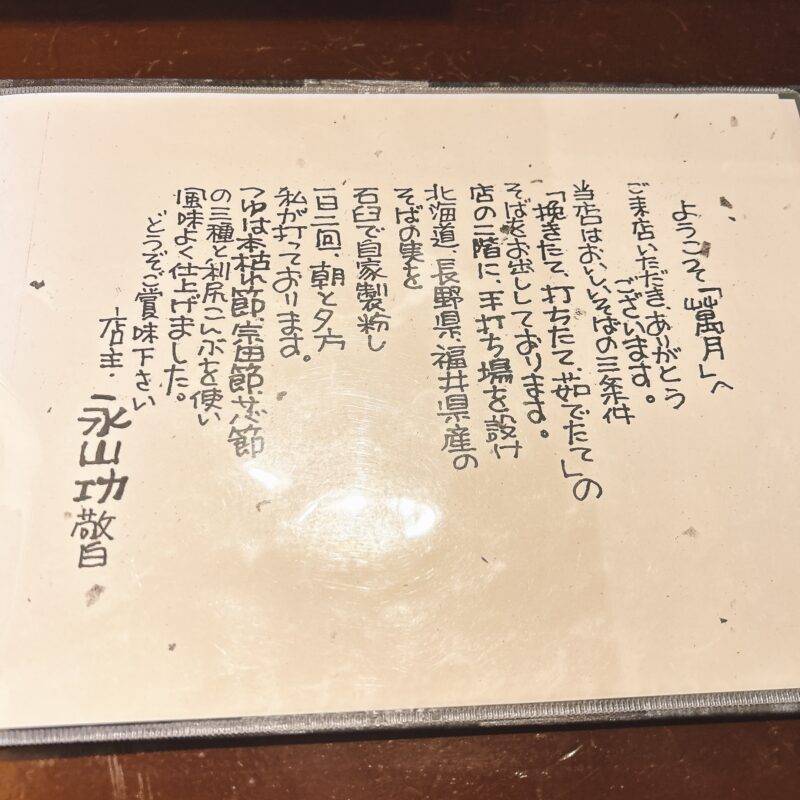 ようこそ「月」へ
ご来店いただき、ありがとう
ございます。
当店はおいしいそばの三条件
「挽きたて、打ちたて、茹でたて」の
そばをお出ししております。
店の二階に、手打ち場を設け
北海道、長野県、福井県産の
そばの実を
石臼で自家製粉し
一日二回、朝と夕方
私が打っております。
つゆは本枯れ節、宗田節、節
の三種と利尻こんぶを使い
風味よく仕上げました。
どうぞご賞味下さい
店主・永山功 敬白